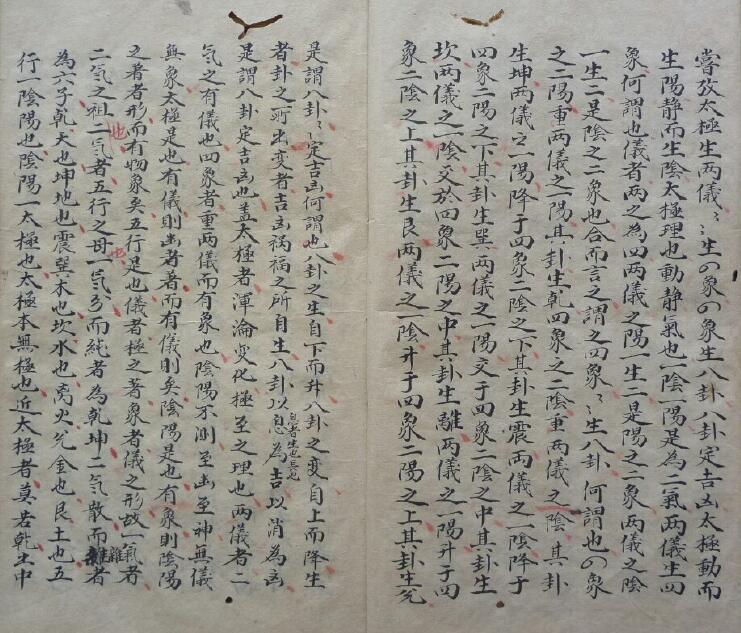 嘗攷太極生两儀〻生四象四象生八卦八卦定吉凶太極動而
生陽静而生陰太極理也動静氣也一陰一陽是為二氣两儀生四
象何謂也儀者两之為四两儀之陽一生二是陽之二象两儀之陰
一生二是陰之二象也合而言之謂之四象〻生八卦何謂也四象
之二陽重两儀之一陽其卦生乾四象之二陰重两儀之一陰其卦
生坤两儀之一陽降于四象二陰之下其卦生震两儀之一陰降于
四象二陽之下其卦生巽两儀之一陽交于四象二陰之中其卦生
坎两儀之一陰交於四象二陽之中其卦生離两儀之一陽升于四
象二陰之上其卦生艮两儀之一陰升于四象二陽之上其卦生兑
是謂八卦〻定吉凶何謂也八卦之生自下而升八卦之变自上而降生
者卦之所出变者吉凶禍福之所自生八卦以息息者生也長也為吉以消為凶
是謂八卦定吉凶也盖太極者渾淪变化極至之理也两儀者二
气之有儀也四象者重两儀而有象也陰陽不測至幽至神無儀
無象太極是也有儀則幽者著而有儀則矣陰陽是也有象則陰陽
之著者形而有物象矣五行是也儀者極之著象者儀之形故一氣者
二气之祖也二气者五行之母也一气分而純者為乾坤二气散而雜者
為六子乾天也坤地也震巽木也坎水也离火兑金也艮土也五
行一陰陽也陰陽一太極也太極本無極也近太極者莫若乾坤中